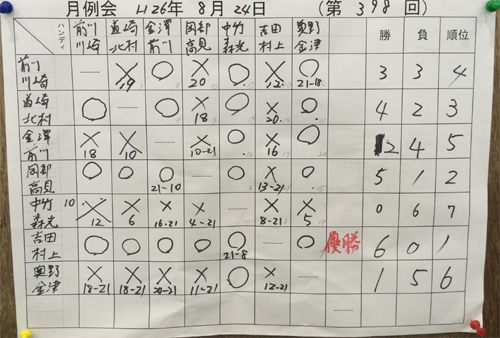 月例会 H26年 8月 24日 (第 398 回)
ハンディ 前川 川崎 直崎 北村 金澤 前川 岡部 高見 中竹 森光 吉田 村上 奥野 金津 勝 負 順位
前川 川崎 × 19 ○ × 20 ○ × 12 ○ 21-18 3 3 4
直崎 北村 ○ ○ × 18 ○ × 20 ○ 4 2 3
金澤 前川 × 18 × 10 × 10-21 ○ × 16 ○ 2 4 5
岡部 高見 ○ ○ ○ 21-10 ○ × 13-21 ○ 5 1 2
中竹 森光 10 × 12 × 6 × 16-21 × 4-21 × 8-21 × 5 0 6 7
吉田 村上 ○ ○ ○ ○ ○ 21-8 ○ 優勝 6 0 1
奥野 金津 × 18-21 × 18-21 × 20-21 × 11-21 ○ × 12-21 1 5 6